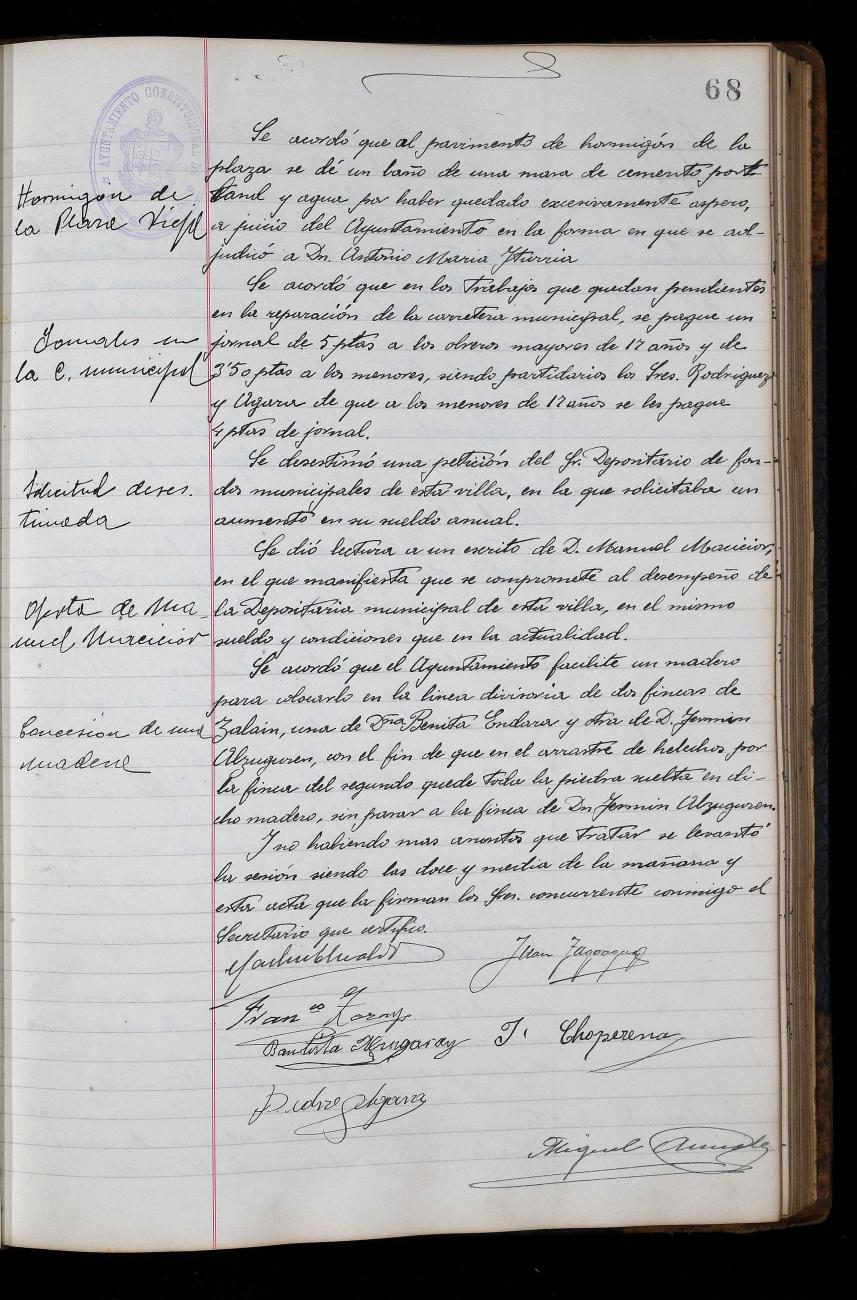 68
AYUNTAMIENTO CONSTITUCIONAL
Se acordó que al pavimento de hormigón de la
plaza se dé un baño de una masa de cemento port
Hormigón de
land y agua por haber quedado excesivamente aspero,
la Plaza Vieja
a juicio del Ayuntamiento en la forma en que se ad-
judicó a Dn. Antonio Maria Yturria
Se acordó que en los trabajos que quedan pendientes
en la reparación de la carretera municipal, se pague un
Jornales en
jornal de 5 ptas a los obreros mayores de 17 años y de
la C. municipal
3'50 ptas a los menores, siendo partidarios los Sres. Rodriguez
y Agara de que a los menores de 17 años se les pague
4 ptas de jornal.
Se desestimó una petición del Sr. Depositario de fon-
Solicitud deses-
dos municipales de esta villa, en la que solicitaba un
timada
aumento en su sueldo anual.
Se dió lectura a un escrito de D. Manuel Macicior,
en el que manifiesta que se compromete al desempeño de
Oferta de Ma-
la Depositaria municipal de esta villa, en el mismo
nuel Macicior
sueldo y condiciones que en la actualidad.
Se acordó que el Ayuntamiento facilite un madero
para colocarlo en la linea divisoria de dos fincas de
Concesión de una
Zalain, una de Dña Benita Endara y otra de D. Fermin
madera
Alzuguren, con el fin de que en el arrastre de helechos por
la finca del segundo quede toda la piedra suelta en di-
cho madero, sin pasar a la finca de Dn Fermin Alzuguren.
Y no habiendo mas asuntos que tratar se levantó
la sesión siendo las doce y media de la mañana y
esta acta que la firman los Sres. concurrente conmigo el
Secretario que certifico.
Juan
Franco
Bautista
J. Choperena
Pedro Agara
Miguel